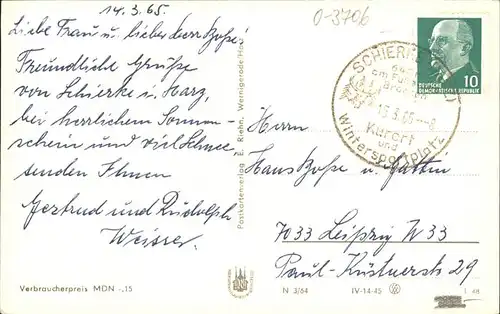 14.3.65.
0-3706
Liebe Frau u. lieber Herr Bosse!
Freundliche Grüße
von Schierke i. Harz,
bei herrlichem Sonnen-
schein und viel Schnee
senden Ihnen
Gertrud und Rudolph
Weisser
Verbraucherpreis MDN -,15
Postkartenverlag E. Riehn, Wernigerode/Harz
SCHIERKE
am Fuße
Kurort
und
Wintersportplatz
10
DEUTSCHE
DEMOKRATISCHE REPUBLIK
Herrn
Hans Bosse u. Gattin
7033 Leipzig W33
Paul-Küstnerstr 29
N 3/64 IV-14-45
48